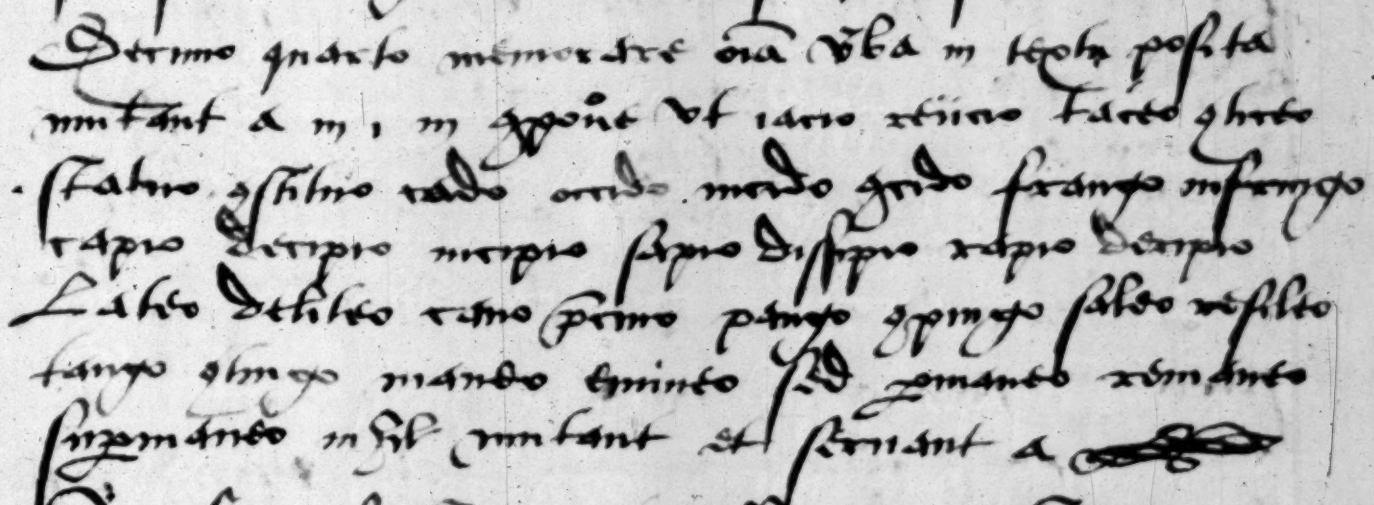 Decimo quarto memorare oīa v̄ba in textu posita
mutant a in i in ꝯpoōne vt iacio reiicio taceo ꝯticeo
statuo ꝯstituo cado occido incido ꝯcido frango infringo
capio decipio incipio sapio dissipio rapio deripio
Lateo deliteo cano p̄cino pango ꝯpingo saleo resileo
tango ꝯtingo maneo emineo sed ꝑmaneo remaneo
suꝑmaneo nihil mutant et seruant a